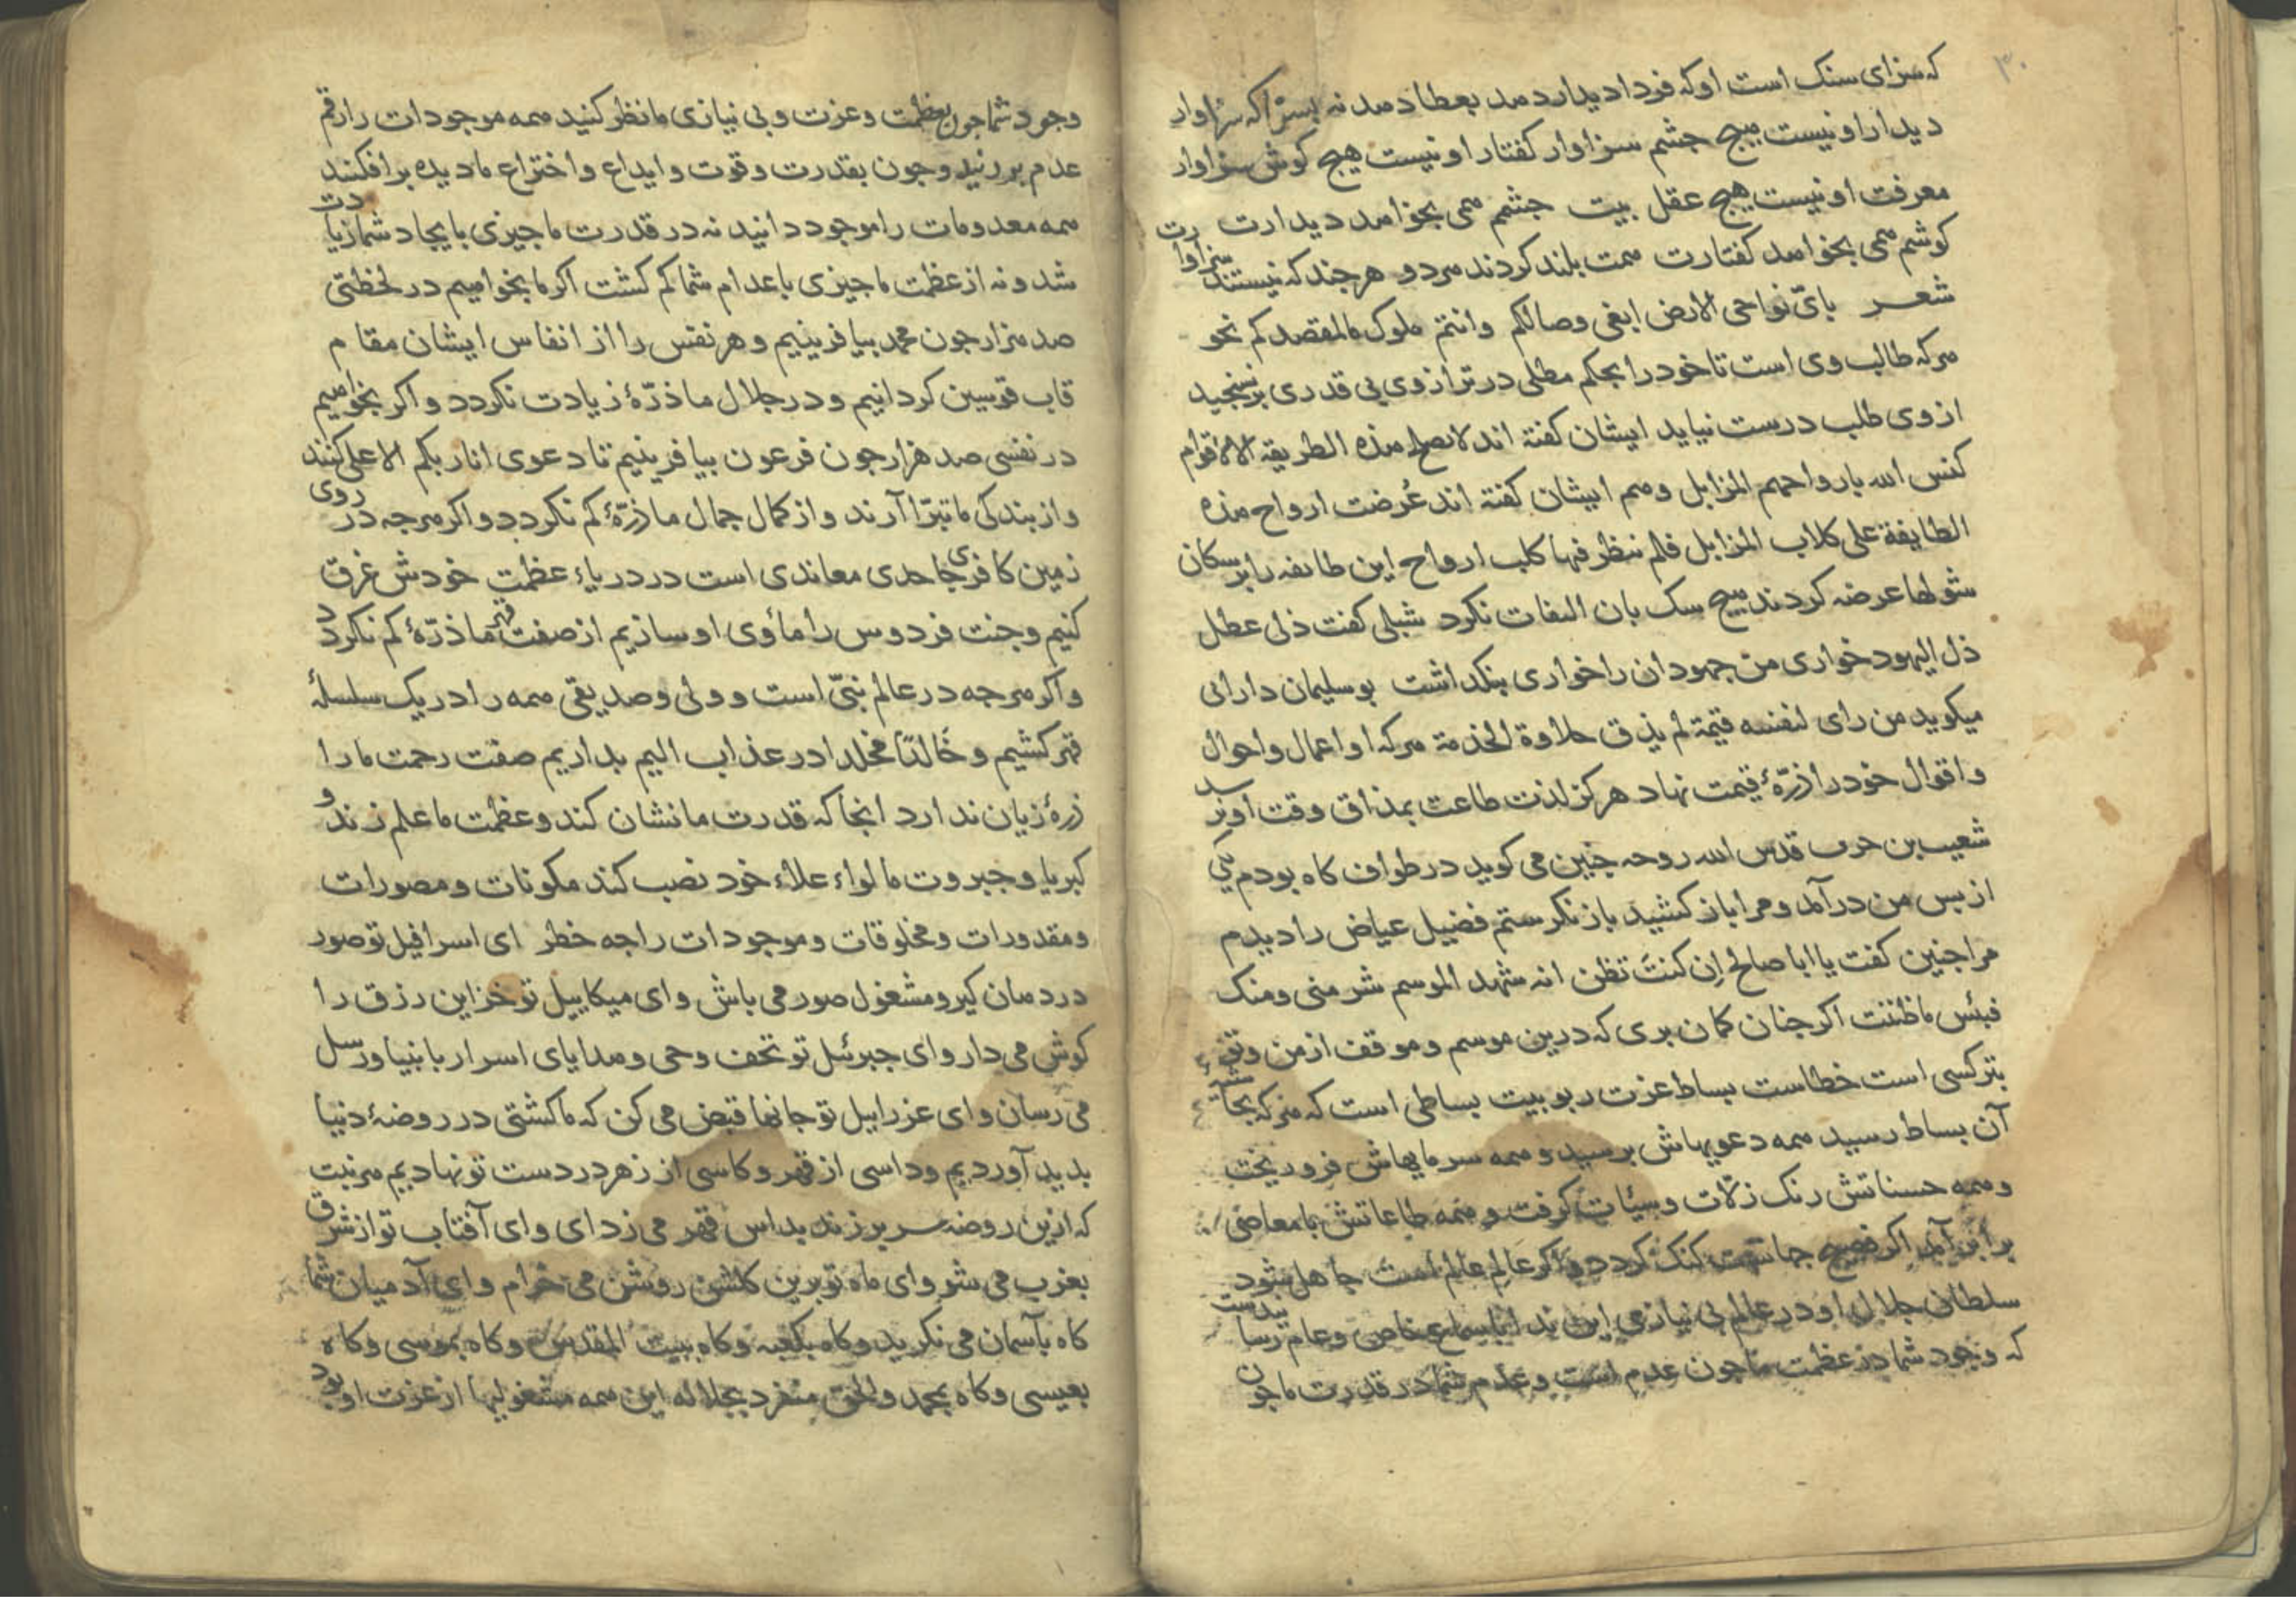 ۳۰
که سزای سنک است او که فردا دیدار دهد بعطا دهد نه بسزا که سزاوار
دیدار او نیست هیچ چشم سزاوار کفتار او نیست هیچ کوش سزاوار
معرفت او نیست هیچ عقل بیت جشمم همی بخواهد دیدارت
کوشم همی بخواهد کفتارت همت بلند کردند هر دو هرجند که نیستند سزاوارت
شعر بایّ نواحی الارض ابغی وصالکم وانتم ملوک ما لمقصدکم نحو
هرکه طالب وی است تا خود را بحکم مطلبی در ترازوی بی قدری برنسنجید
از وی طلب درست نیاید ایشان کفته اند لا تصلح هذه الطریقة الا لاقوام
کنس الله بارواحهم المزابل و هم ایشان کفته اند عُرضت ارواح هذه
الطایفة علی کلاب المزابل فلم ینظر فیها کلب ارواح این طایفه را بر سکان
شولها عرضه کردند هیچ سک بان التفات نکرد شبلی کفت ذلی عطل
ذل الیهود خواری من جهودان را خواری بنکداشت بوسلیمان دارانی
میکوید من رای لنفسه قیمة لم یذق حلاوة الخذمة هرکه او اعمال و احوال
و اقوال خود را ذرّۀ قیمت نهاد هرکز لذت طاعت بمذاق وقت او نرسد
شعیب بن حرب قدس الله روحه جنین می کوید در طواف کاه بودم یکی
از پس من درآمد و مرا باز کشید باز نکرستم فضیل عیاض را دیدم
مرا جنین کفت یا ابا صالح اِن کنتَ تظن انه شهد الموسم شر منی و منک
فبئس ما ظننت اکر جنان کمان بری که درین موسم و موقف از من و تو
بتر کسی است خطاست بساط عزت ربوبیت بساطی است که هرکه بحاشیۀ
آن بساط رسید همه دعویهاش برسید و همه سرمایهاش فرو ریخت
و همه حسناتش رنک زلات و سیئات کرفت و همه طاعاتش با معاصی
برابر آمد اکر فصیح جهانست کنک کردد و اکر عالم عالم است جاهل شود
سلطان جلال او در عالم بی نیازی این ندا باسماع خاص و عام رسانیدست
که وجود شما در عظمت ما جون عدم است و عدم شما در قدرت ما جون
وجود شما جون بعظمت و عزت و بی نیازی ما نظر کنید همه موجودات را رقم
عدم بر زنید و جون بقدرت و قوت و ابداع و اختراع ما دیده برافکنند
همه معدومات را موجود دانید نه در قدرت ما جیزی بایجاد شما زیادت
شد و نه از عظمت ما جیزی باعدام شما کم کشت اکر ما بخواهیم در لحظتی
صد هزار جون محمد بیافرینیم و هر نفس را از انفاس ایشان مقام
قاب قوسین کردانیم و در جلال ما ذرّۀ زیادت نکردد و اکر بخواهیم
در نفسی صد هزار جون فرعون بیافرینیم تا دعوی انا ربکم الاعلی کنند
و از بندکی ما تبرّا آرند و از کمال جمال ما ذرّۀ کم نکردد و اکر هرجه در روی
زمین کافری جاحدی معاندی است در دریاء عظمت خودش غرق
کنیم و جنت فردوس را مأوی او سازیم از صفت قهر ما ذرّۀ کم نکردد
و اکر هرجه در عالم نبیّ است و ولی و صدیقی همه را در یک سلسلۀ
قهر کشیم و خالدًا مخلدا در عذاب الیم بداریم صفت رحمت ما را
ذرۀ زیان ندارد انجا که قدرت ما نشان کند و عظمت ما علم زند و
کبریا و جبروت ما لواء علاء خود نصب کند مکونات و مصورات
و مقدورات و مخلوقات و موجودات را جه خطر ای اسرافیل تو صور
در دهان کیر و مشغول صور می باش و ای میکاییل تو خزاین رزق را
کوش می دار و ای جبرئیل تو تحف وحی و هدایای اسرار بانبیا و رسل
می رسان و ای عزراییل تو جانها قبض می کن که ما کشتی در روضۀ دنیا
بدید آوردیم و داسی از قهر و کاسی از زهر در دست تو نهادیم هر نبت
که ازین روضه سر بر زند بداس قهر می زدای و ای آفتاب تو از شرق
بغرب می شو و ای ماه تو برین کلشن روشن می خرام و ای آدمیان شما
کاه بآسمان می نکرید و کاه بکعبه و کاه ببیت المقدس و کاه بموسی و کاه
بعیسی و کاه بمحمد والحق منفرد بجلاله این همه مشغولیها از عزت او بود